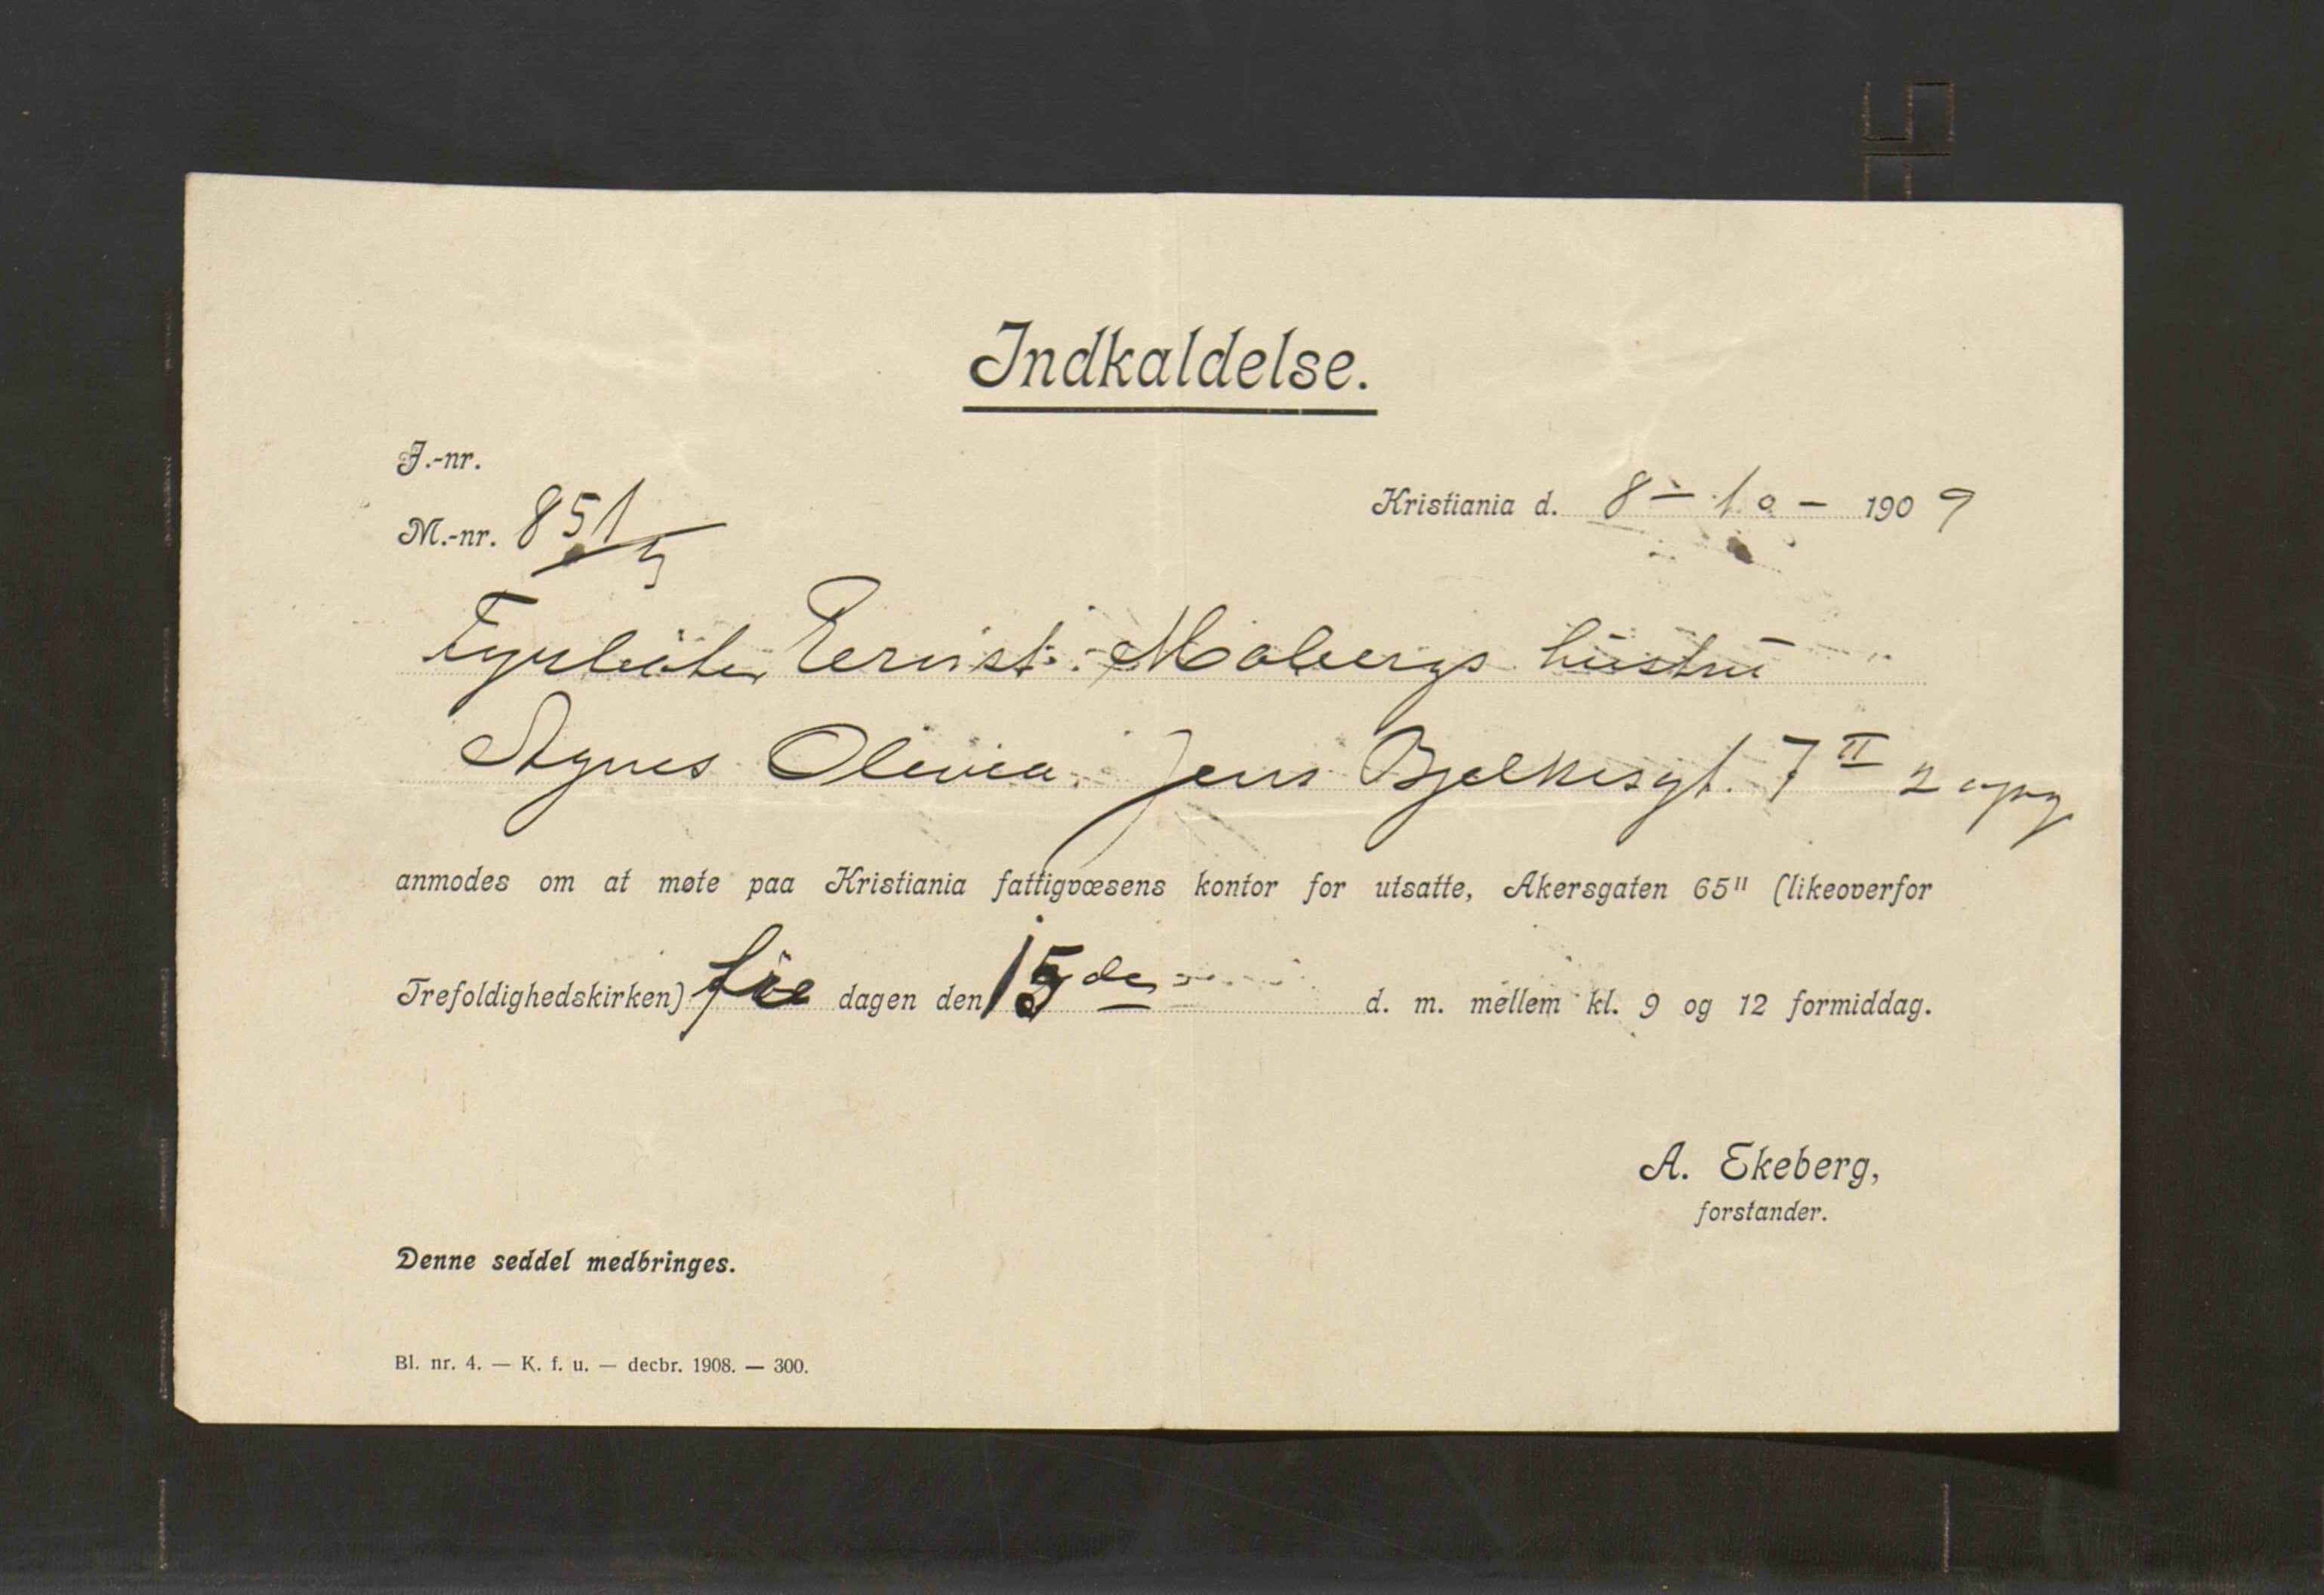 Indkaldelse.
J.-nr.
Kristiania d. 8 - 10 - 1909
M.-nr. 851/5
Fyrbøter Ernst Mobergs hustru
Agnes Olivia. Jens Bjelkesgt. 7 II 2 opg
anmodes om at møte paa Kristiania fattigvæsens kontor for utsatte, Akersgaten 65II (likeoverfor
Trefoldighedskirken) fre dagen den 15de d. m. mellem kl. 9 og 12 formiddag.
A. Ekeberg,
forstander.
Denne seddel medbringes.
Bl. nr. 4. — K. f. u. — decbr. 1908. — 300.